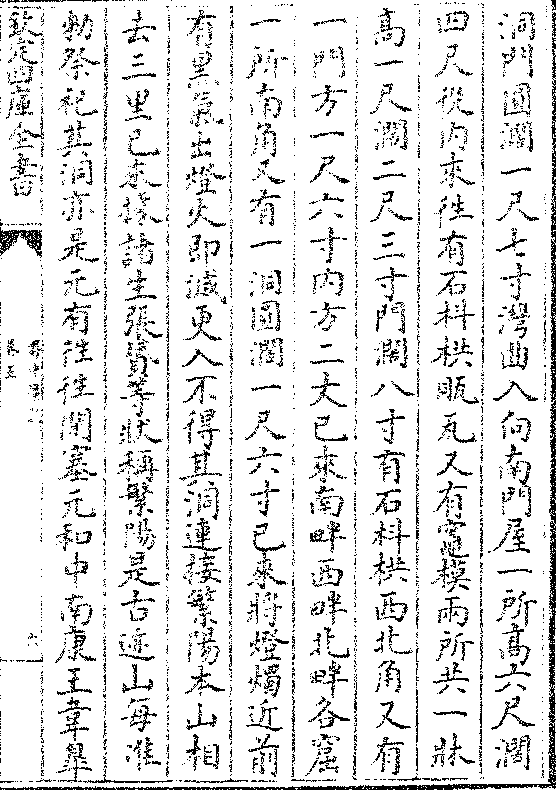 洞門圓濶一尺七寸灣曲入向南門屋一所高六尺濶
四尺從内來徃有石枓栱瓪瓦又有竈模兩所共一牀
高一尺濶二尺三寸門闊八寸有石枓栱西北角又有
一門方一尺六寸内方二丈已來南畔西畔北畔各窟
一所南角又有一洞圓濶一尺六寸已來將燈燭近前
有黒氣出燈火即滅更入不得其洞連接繁陽本山相
去三里已來據諸生張賁等狀稱繁陽是古迹山每准
勅祭祀其洞亦是元有徃徃閉塞元和中南康王韋臯
欽定四庫全書
卷五
六